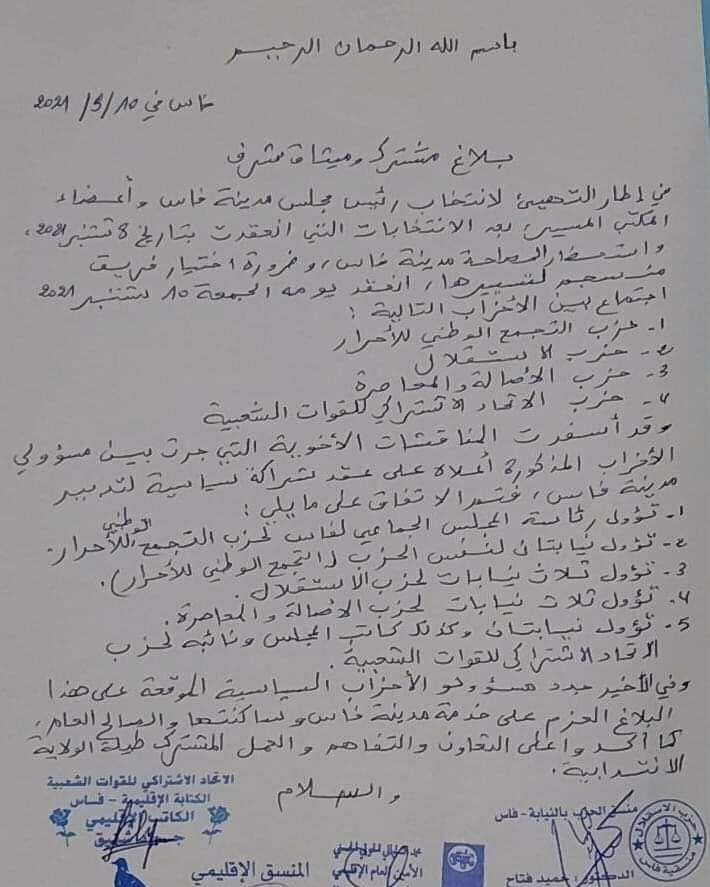 باسم الله الرحمان الرحيم
فاس في 10/9/2021
بلاغ مشترك وميثاق شرف
في إطار التهيئ لانتخاب رئيس مجلس مدينة فاس وأعضاء
المكتب المسير، بعد الانتخابات التي انعقدت بتاريخ 8 شتنبر 2021،
واستحضارا لمصلحة مدينة فاس، وضرورة اختيار فريق
منسجم لتسييرها، انعقد يومه الجمعة 10 شتنبر 2021
اجتماع بين الأحزاب التالية :
1- حزب التجمع الوطني للأحرار
2- حزب الاستقلال
3- حزب الأصالة والمعاصرة
4- حزب الاتحاد الاشتراكي للقوات الشعبية
وقد أسفرت المناقشات الأخوية التي جرت بين مسؤولي
الأحزاب المذكورة أعلاه على عقد شراكة سياسية لتدبير
مدينة فاس، فتم الاتفاق على ما يلي :
1- تؤول رئاسة المجلس الجماعي لفاس لحزب التجمع الوطني للأحرار.
2- تؤول نيابتان لنفس الحزب (التجمع الوطني للأحرار).
3- تؤول ثلاث نيابات لحزب الاستقلال.
4- تؤول ثلاث نيابات لحزب الأصالة والمعاصرة.
5- تؤول نيابتان وكذلك كاتب المجلس ونائبه لحزب
الاتحاد الاشتراكي للقوات الشعبية.
وفي الأخير جدد مسؤولو الأحزاب السياسية الموقعة على هذا
البلاغ العزم على خدمة مدينة فاس وساكنتها والصالح العام،
كما أكدوا على التعاون والتفاهم والعمل المشترك طيلة الولاية
الانتدابية.
والسلام
الاتحاد الاشتراكي للقوات الشعبية
الكتابة الإقليمية - فاس
الكاتب الإقليمي
المنسق الإقليمي
الأمين العام الإقليمي
منسق الحزب بالنيابة - فاس
الدكتور : حميد فتاح
حزب الاستقلال